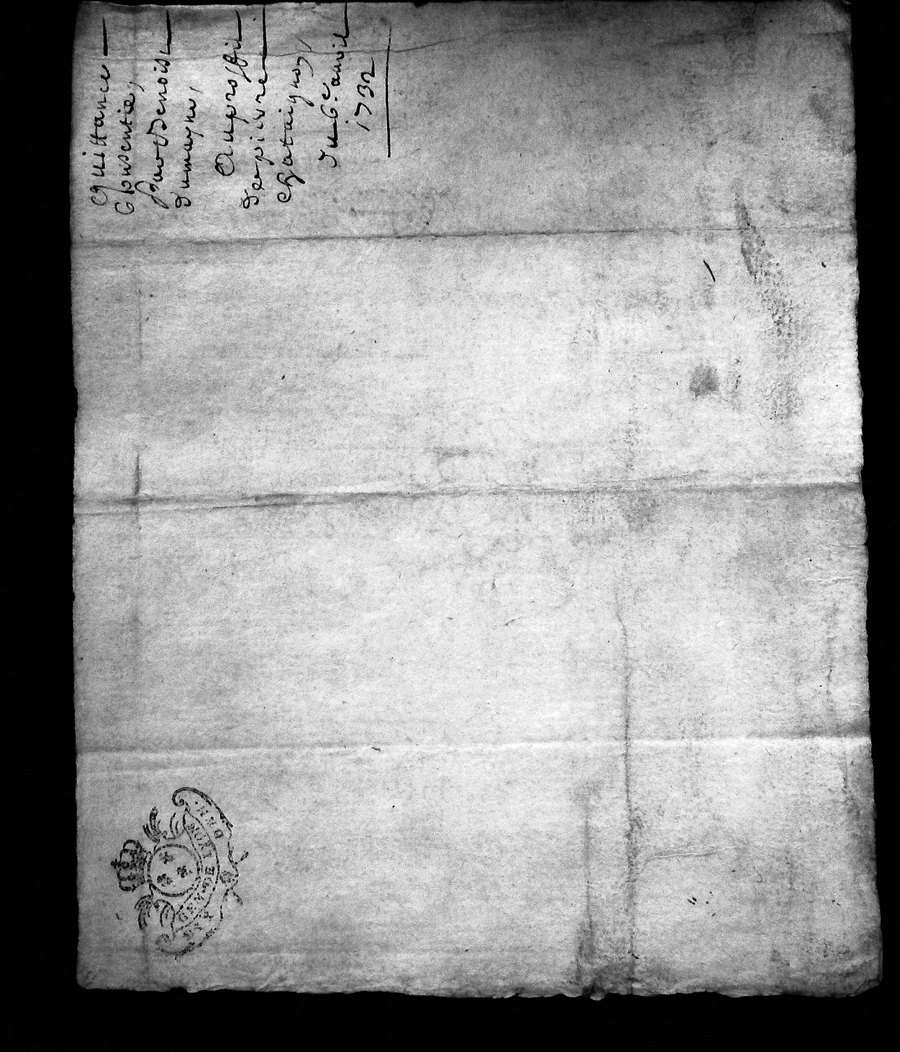 Quittance
Consentie,
par Benoist
Dumayne,
Au proffit
de pierre
Chataignon,
Du 6e avril
1732